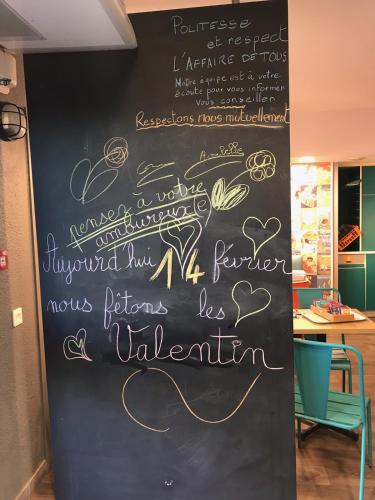 Politesse
et respect
L'AFFAIRE DE TOUS
Notre équipe est à votre
écoute pour vous informer
vous conseiller
Respectons nous mutuellement
pensez a votre
amoureux(se)
Aujourd'hui 14 février
nous fêtons les
Valentin